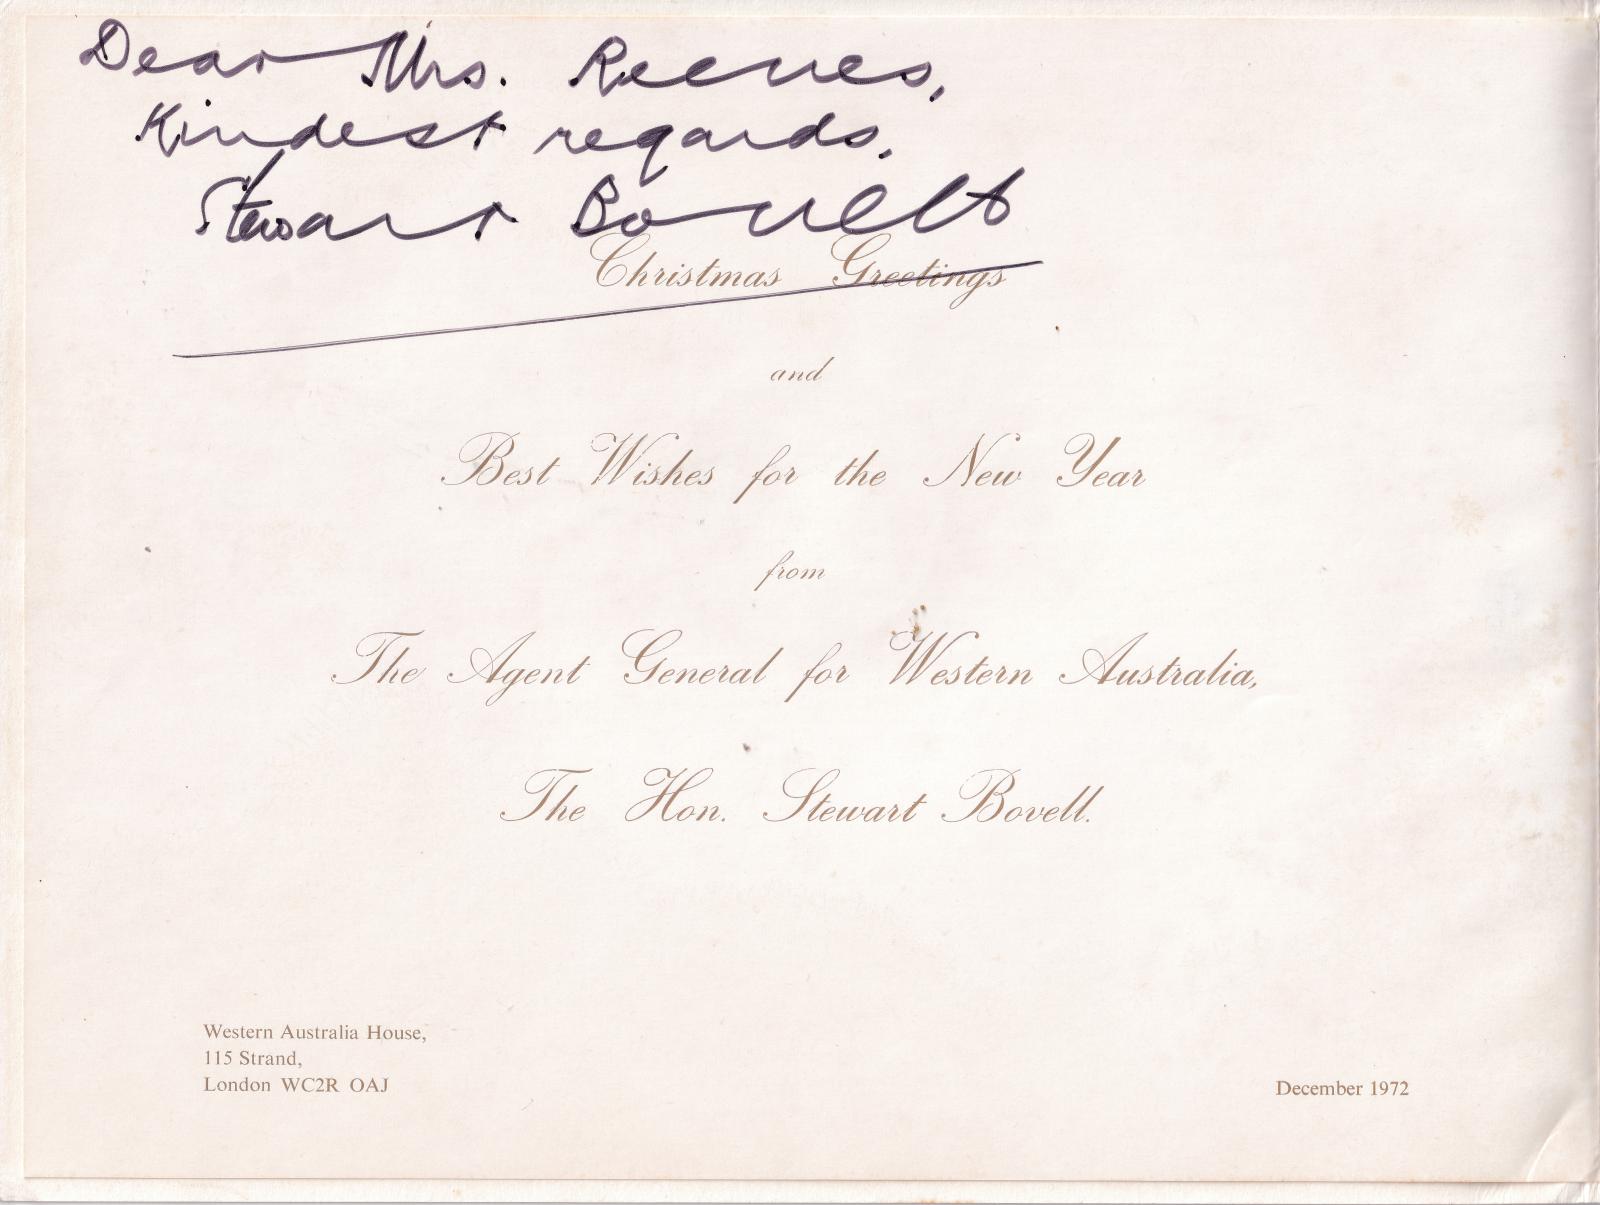 Dear Mrs. Reeves,
Kindest regards,
Stewart Bovell
Christmas Greetings
and
Best Wishes for the New Year
from
The Agent General for Western Australia,
The Hon. Stewart Bovell.
Western Australia House,
115 Strand,
London WC2R OAJ
December 1972